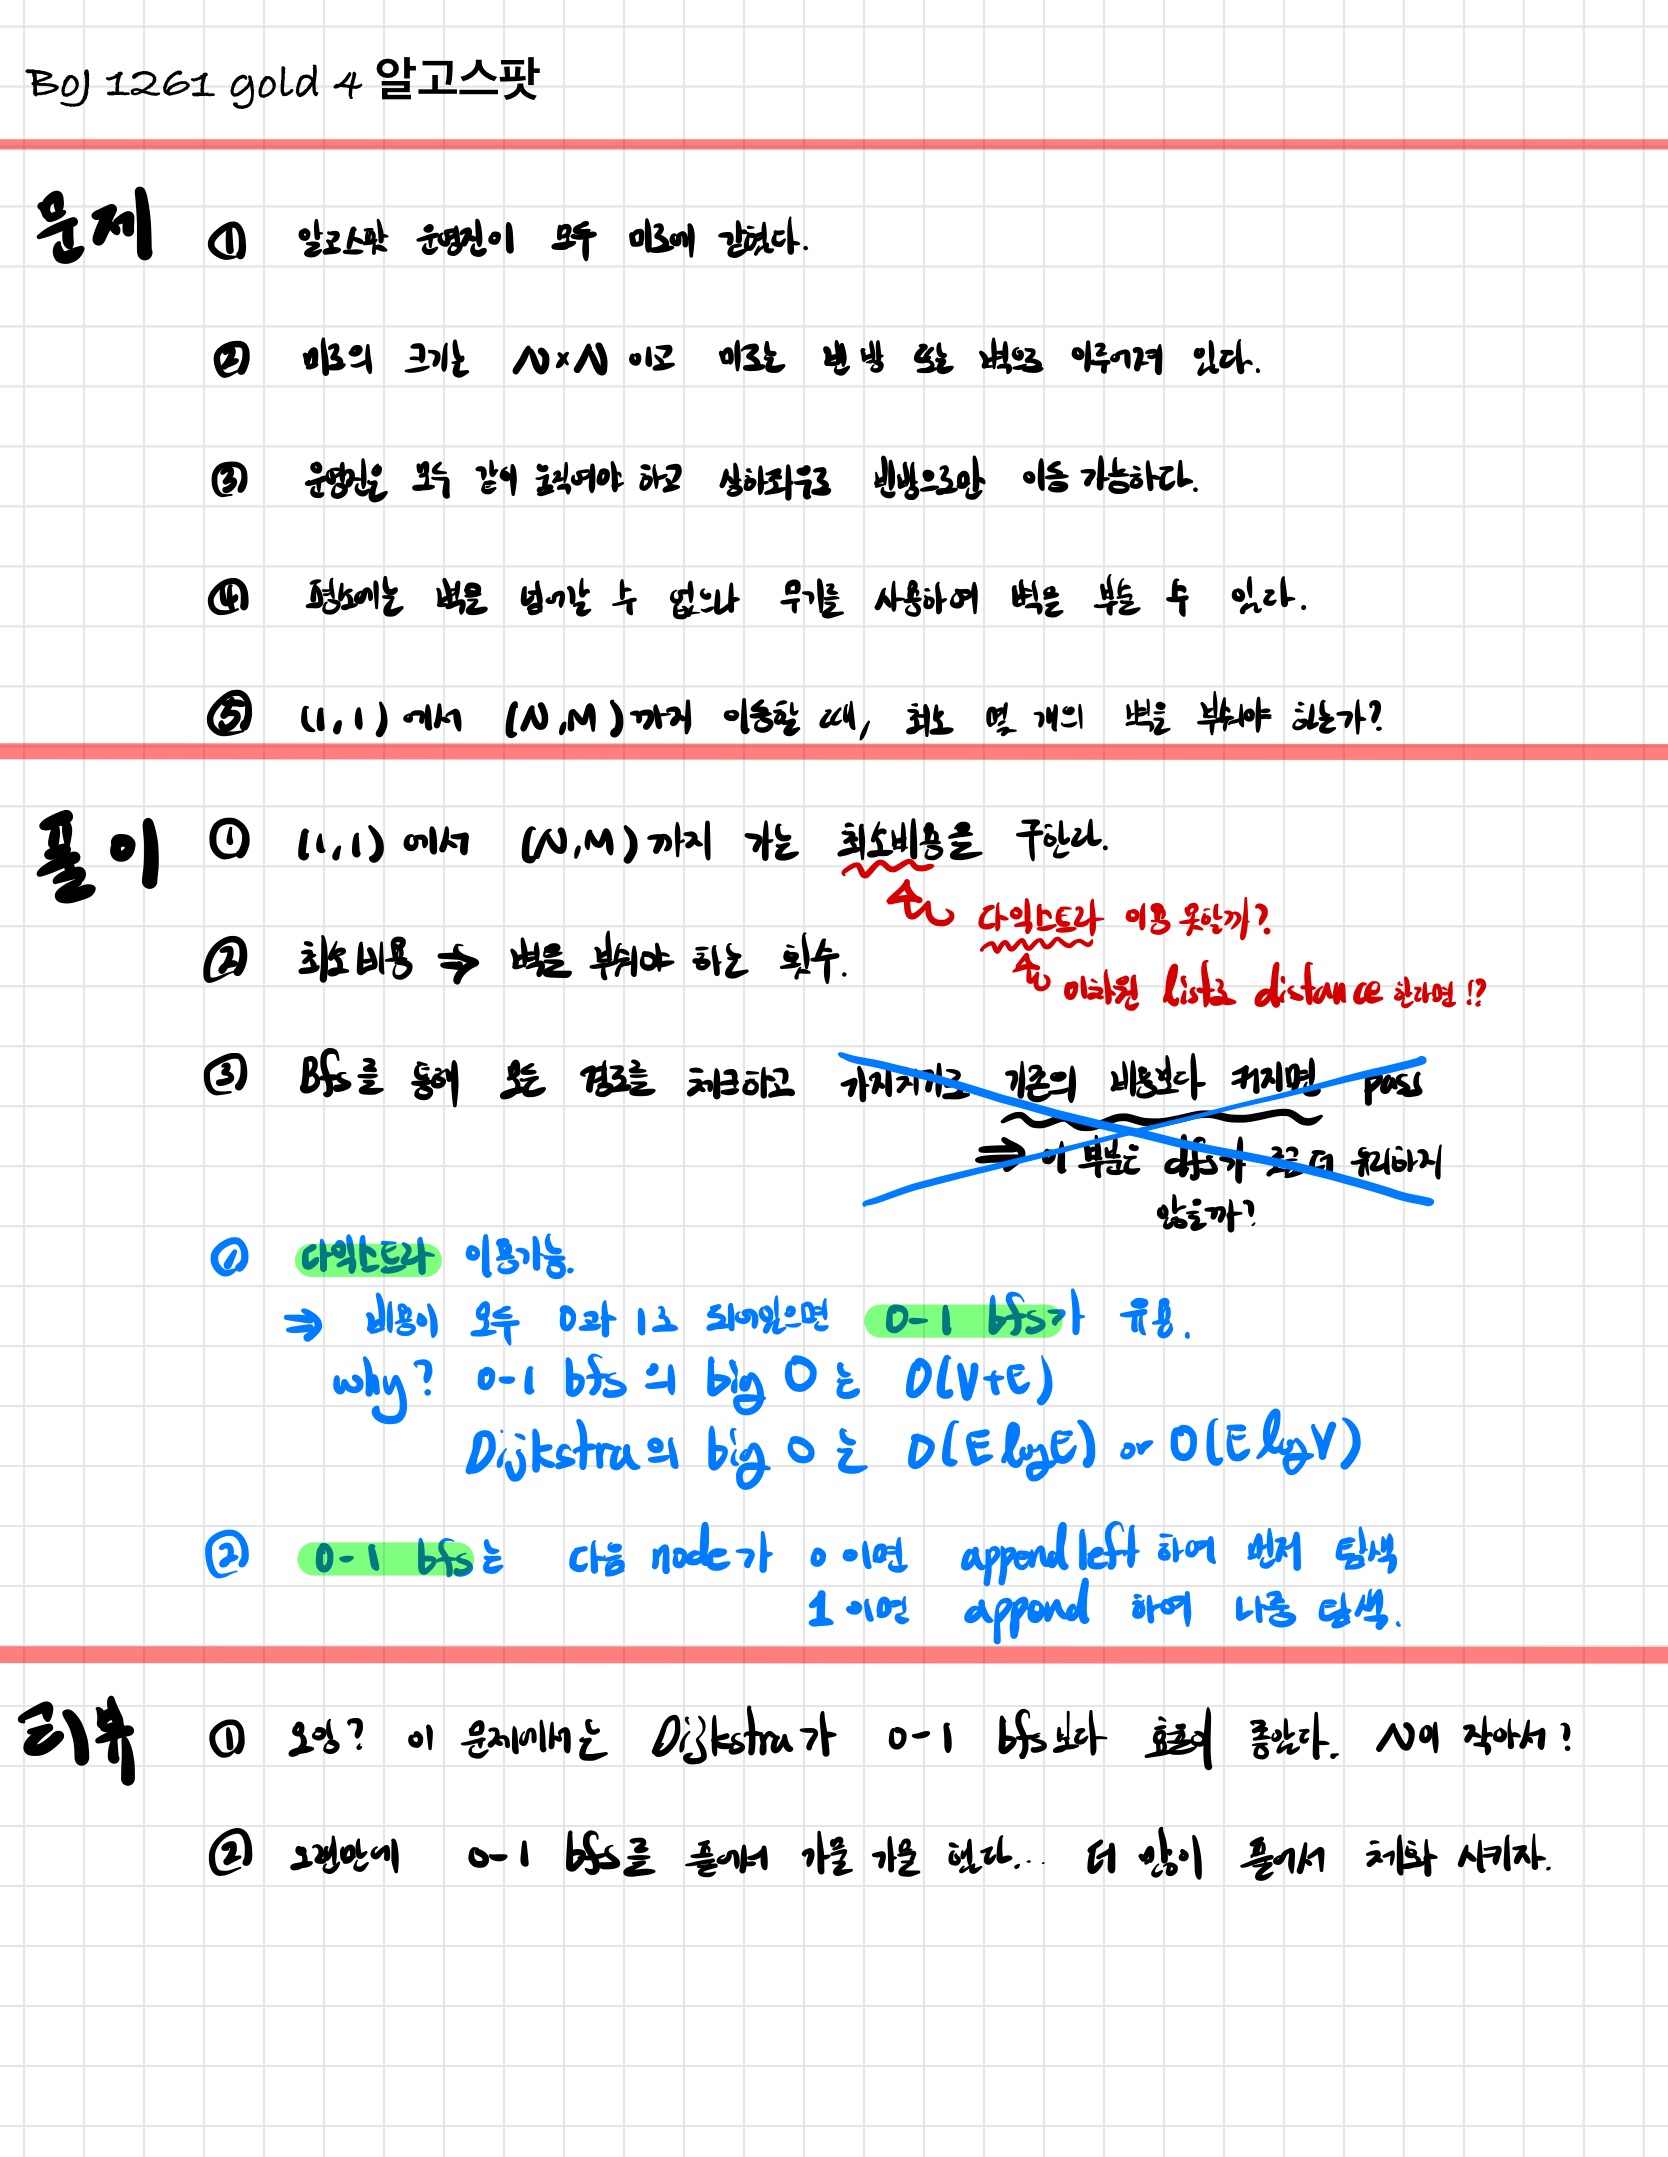 BOJ 1261 gold 4 알고스팟
문제
① 알고스팟 운영진이 모두 미로에 갇혔다.
② 미로의 크기는 N×N 이고 미로는 빈 방 또는 벽으로 이루어져 있다.
③ 운영진은 모두 같이 움직여야 하고 상하좌우로 빈방으로만 이동 가능하다.
④ 평소에는 벽을 넘어갈 수 없으나 무기를 사용하여 벽을 부술 수 있다.
⑤ (1,1) 에서 (N,M) 까지 이동할 때, 최소 몇 개의 벽을 부숴야 하는가?
풀이
① (1,1) 에서 (N,M) 까지 가는 최소비용을 구한라.
다익스트라 이용 못할까?
② 최소비용 ⇒ 벽을 부숴야 하는 횟수.
이차원 list로 distance 한다면!?
③ Bfs를 통해 모든 경로를 체크하고 가지치기로 기존의 비용보다 커지면 pass
⇒ 이 부분은 dfs가 조금 더 유리하지
않을까?
① 다익스트라 이용가능.
⇒ 비용이 모두 0과 1로 되어있으면 0-1 bfs가 유용.
why? 0-1 bfs의 big O는 O(V+E)
Dijkstra의 big O는 O(ElogE) or O(ElogV)
② 0-1 bfs는 다음 node가 0 이면 appendleft 하여 먼저 탐색
1 이면 append 하여 나중 탐색.
리뷰
① 오잉? 이 문제에서는 Dijkstra가 0-1 bfs보다 효율이 좋았다. N이 작아서?
② 오랜만에 0-1 bfs를 풀어서 가물가물 했다... 더 많이 풀어서 체화 시키자.